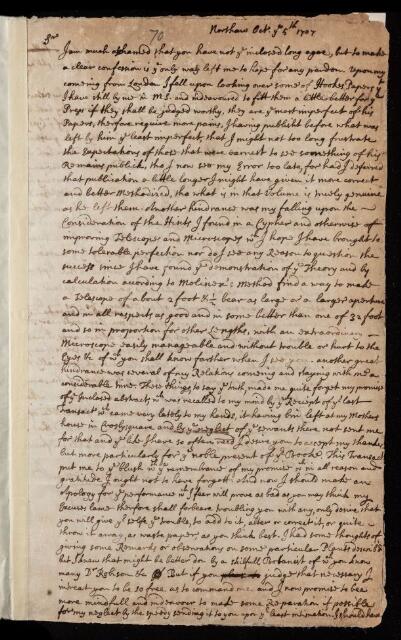 70
Northaw Oct. ye 5th 1707
Sr
I am much ashamed that you have not ye inclosed long agoe, but to make
a clear confession is ye only way left me to hope for any pardon. Upon my
comeing from London I fell upon looking over some of Dr Hooks Papers wch
I have still by me in M.S. and endeavoured to fitt them a little better for ye
Press if they shall be judged worthy, they are ye most imperfect of his
Papers, therefore require more pains, I having publisht before what was
left by him ye least imperfect, that I might not too long frustrate
the Expectations of those that were earnest to see something of his
Remains publick, tho I now see my Error too late, for had I deferred
that publication a little longer I might have given it more correct
and better Methodised, tho what is in that volume is truely genuine
as he left them. Another hindrance was my falling upon the
Consideration of the Hints I found in a Cypher and otherwise of
improving Telescopes and Microscopes wch I hope I have brought to
some tolerable perfection nor do I see any Reason to question the
success since I have found ye demonstration of ye Theory and by
calculation according to Molineux's Method find a way to make
a Telescope of about 2 foot & ½ bear as large or a larger aperture
and in all respects as good and in some better than one of 32 foot
and so in proportion for other Lengths, with an extraordinary
Microscope easily manageable and without trouble or hurt to the
Eyes &c of wch you shall know farther when I see you. another great
hindrance was several of my Relations comeing and staying with me a
considerable time. These things to say ye truth made me quite forget my promise
of ye inclosed abstract, wch was recalled to my mind by ye Receipt of ye last
Transact: wch came very lately to my hands, it having bin left at my Mothers
house in Crosbysquare and by ye neglect of ye servants there not sent me,
for that and ye like I have so often I desire you to accept my thanks,
but more particularly for ye noble present of ye Booke. This Transact
put me to ye blush wth ye remembrance of my promise wch in all reason and
gratitude I ought not to have forgott: and now I should make an
Apology for ye performance wch I fear will prove as bad as you may think my
Excuses lame therefore shall forbear troubling you with any only desire, that
you will give yr self ye trouble, to add to it, alter or correct it, or quite
throw it away, as waste paper, as you think best. I had some thoughts of
giving some Remarks or observations on some particular Plants describ'd
but I know that might be better don by a skilfull Bottanist of wch you know
many Dr Robson &c But if you judge that necessary I
intreat you to be so free, as to command me, and I now promise to bee
more mindfull and endeavour to make some Reparation if possible
for my neglect by the speedy sending it to you upon ye least intimation, I should have